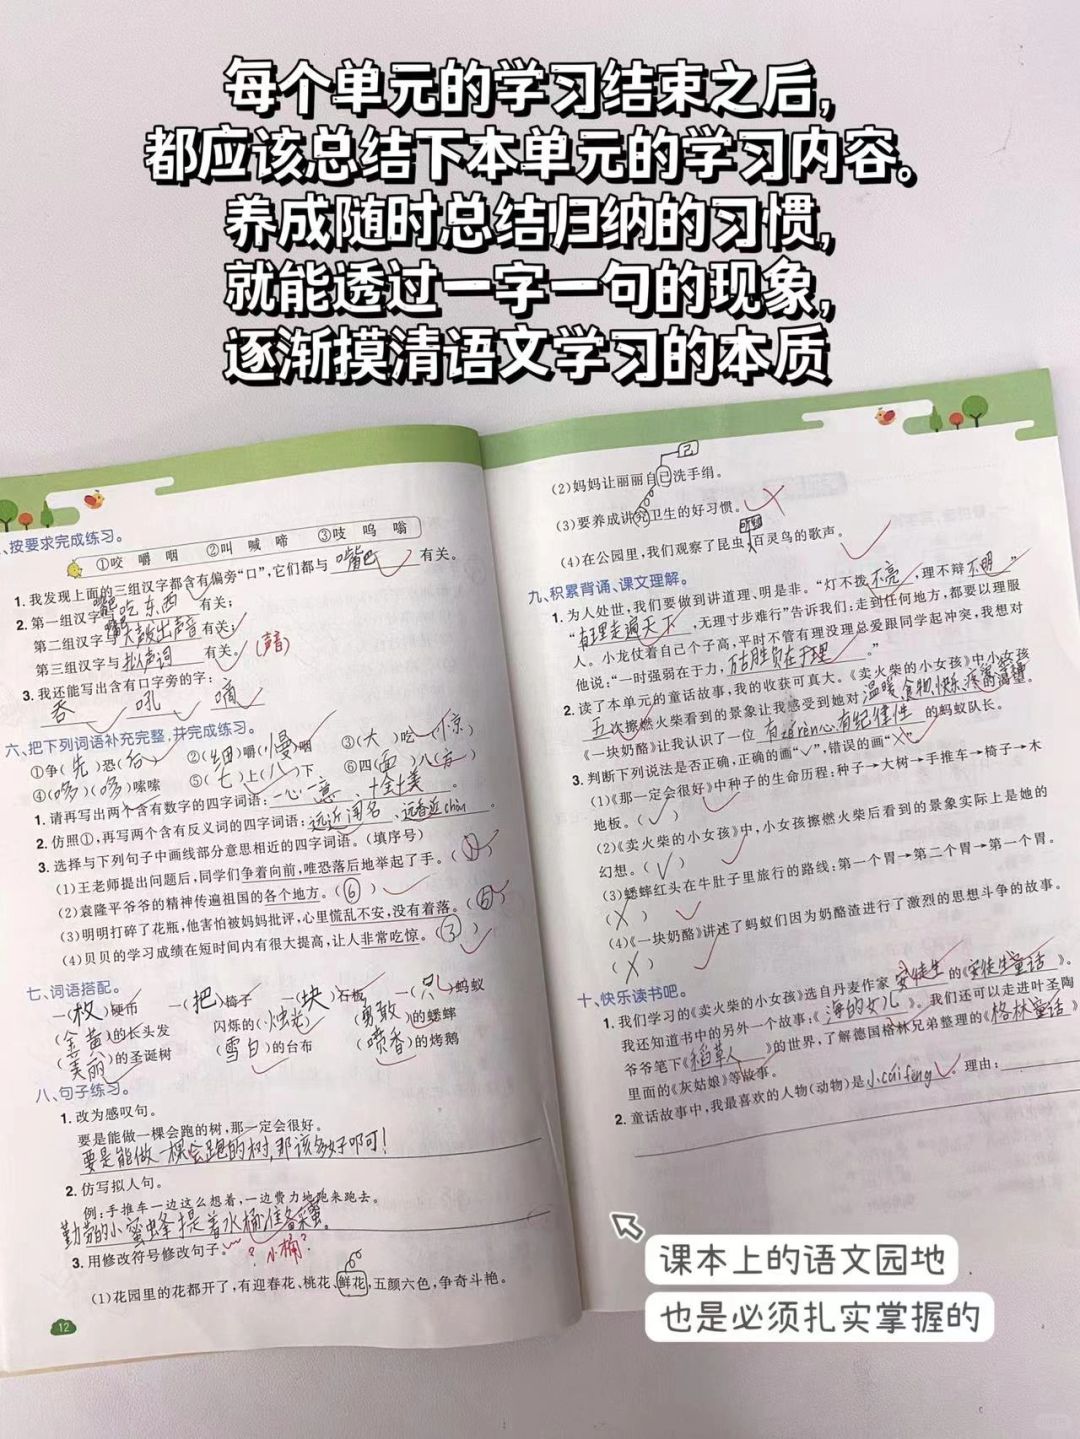 每个单元的学习结束之后，
都应该总结下本单元的学习内容。
养成随时总结归纳的习惯，
就能透过一字一句的现象，
逐渐摸清语文学习的本质
、按要求完成练习。
①咬 嚼 咽 ②叫 喊 啼 ③吱 呜 嗡
1. 我发现上面的三组汉字都含有偏旁“口”，它们都与 嘴巴 有关。
2. 第一组汉字与 嘴吃东西 有关；
第二组汉字与 嘴发出声音 有关；
第三组汉字与 拟声词 有关。(声音)
3. 我还能写出含有口字旁的字：
吞 吼 嘀
六、把下列词语补充完整，并完成练习。
①争(先)恐(后) ②(细)嚼(慢)咽 ③(大)吃一(惊)
④(哆)(哆)嗦嗦 ⑤(七)上(八)下 ⑥四(面)八(方)
1. 请再写出两个含有数字的四字词语：一心一意、十全十美。
2. 仿照①，再写两个含有反义词的四字词语：远近闻名、远香近chòu。
3. 选择与下列句子中画线部分意思相近的四字词语。(填序号)
(1)王老师提出问题后，同学们争着向前，唯恐落后地举起了手。(①)
(2)袁隆平爷爷的精神传遍祖国的各个地方。(⑥)
(3)明明打碎了花瓶，他害怕被妈妈批评，心里慌乱不安，没有着落。(⑤)
(4)贝贝的学习成绩在短时间内有很大提高，让人非常吃惊。(③)
七、词语搭配。
一(枚)硬币 一(把)椅子 一(块)石板 一(只)蚂蚁
(金黄)的长头发 闪烁的(烛光) (勇敢)的蟋蟀
(美丽)的圣诞树 (雪白)的台布 (喷香)的烤鹅
八、句子练习。
1. 改为感叹句。
要是能做一棵会跑的树，那一定会很好。
要是能做一棵会跑的树，那该多好啊可！
2. 仿写拟人句。
例：手推车一边这么想着，一边费力地跑来跑去。
勤劳的小蜜蜂提着水桶准备采蜜。
3. 用修改符号修改句子。 ? 小桶?
(1)花园里的花都开了，有迎春花、桃花、鲜花，五颜六色，争奇斗艳。
12
己
(2)妈妈让丽丽自已洗手绢。
(3)要养成讲究卫生的好习惯。
(4)在公园里，我们观察了昆虫、百灵鸟的歌声。
九、积累背诵、课文理解。
1. 为人处世，我们要做到讲道理、明是非。“灯不拨不亮，理不辩不明”
“有理走遍天下，无理寸步难行”告诉我们：走到任何地方，都要以理服
人。小龙仗着自己个子高，平时不管有理没理总爱跟同学起冲突，我想对
他说：“一时强弱在于力，万古胜负在于理。”
2. 读了本单元的童话故事，我的收获可真大。《卖火柴的小女孩》中小女孩
五次擦燃火柴看到的景象让我感受到她对温暖、食物、快乐、疼爱的渴望。
《一块奶酪》让我认识了一位 有zérèn心、有纪律性 的蚂蚁队长。
3. 判断下列说法是否正确，正确的画“√”，错误的画“×”。
(1)《那一定会很好》中种子的生命历程：种子→大树→手推车→椅子→木
地板。(√)
(2)《卖火柴的小女孩》中，小女孩擦燃火柴后看到的景象实际上是她的
幻想。(√)
(3)蟋蟀红头在牛肚子里旅行的路线：第一个胃→第二个胃→第一个胃。
(×)
(4)《一块奶酪》讲述了蚂蚁们因为奶酪渣进行了激烈的思想斗争的故事。
(×)
十、快乐读书吧。
1. 我们学习的《卖火柴的小女孩》选自丹麦作家 安徒生 的《安徒生童话》。
我还知道书中的另外一个故事：《海的女儿》。我们还可以走进叶圣陶
爷爷笔下《稻草人》的世界，了解德国格林兄弟整理的《格林童话》
里面的《灰姑娘》等故事。
2. 童话故事中，我最喜欢的人物(动物)是 小cáifeng。理由：
课本上的语文园地
也是必须扎实掌握的